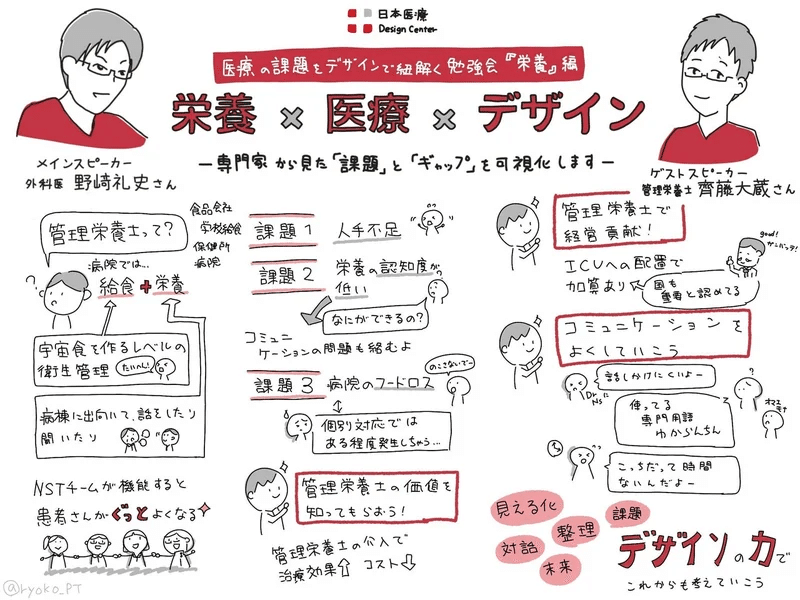 日本医療
Design Center
医療の課題をデザインで紐解く勉強会『栄養』編
栄養×医療×デザイン
ー専門家から見た「課題」と「ギャップ」を可視化しますー
メインスピーカー
外科医 野﨑礼史さん
ゲストスピーカー
管理栄養士 齊藤大蔵さん
管理栄養士って?
食品会社
学校給食
保健所
病院
病院では...
給食+栄養
?
宇宙食を作るレベルの
衛生管理
たいへん!
病棟に出向いて、話をしたり
聞いたり
NSTチームが機能すると
患者さんがぐっとよくなる
課題1 人手不足
課題2 栄養の認知度が
低い
なにができるの?
コミュニ
ケーションの問題も絡むよ
課題3 病院のフードロス
のこさないでー
個別対応では
ある程度発生しちゃう...
管理栄養士の価値を
知ってもらおう!
管理栄養士の介入で
治療効果↑ コスト↓
管理栄養士で
経営貢献!
ICUへの配置で
加算あり
good!
がんバッテ!
国も
重要と認めてる
コミュニケーションを
よくしていこう
話しかけにくいよー
Dr
Ns
使ってる
専門用語
わからんちん
?
オマエモナ
こっちだって時間
ないんだよー
見える化
課題
整理
対話
未来
デザインの力で
これからも考えていこう
@ryoko_PT